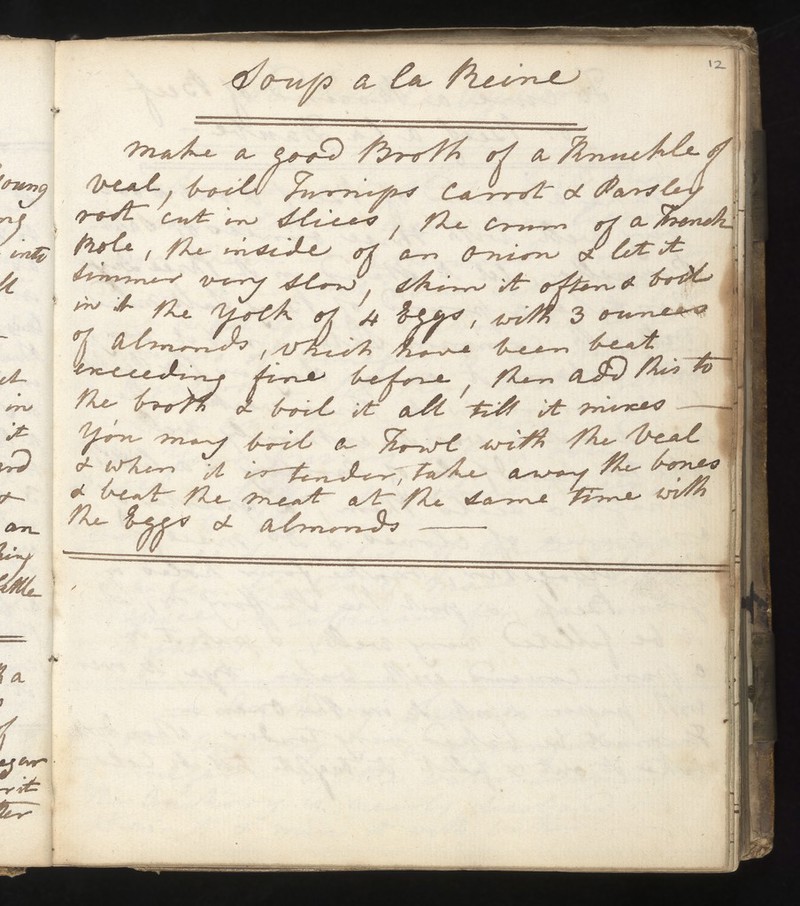 12
Soup a la Reine
make a good Broth of a Knuckle of
veal, boil Turnips Carrot & Parsley
root cut in slices, the crum of a French
Role, the inside of an onion & let it
simmer very slow, skim it often & boil
in it the yolk of 4 Eggs, with 3 ounces
of almonds, which have been beat
exceeding fine before, then add this to
the broth & boil it all till it mixes —
You may boil a Fowl with the Veal
& when it is tender, take away the bones
& beat the meat at the same time with
the Eggs & almonds —
oung
into
in
it
an
a